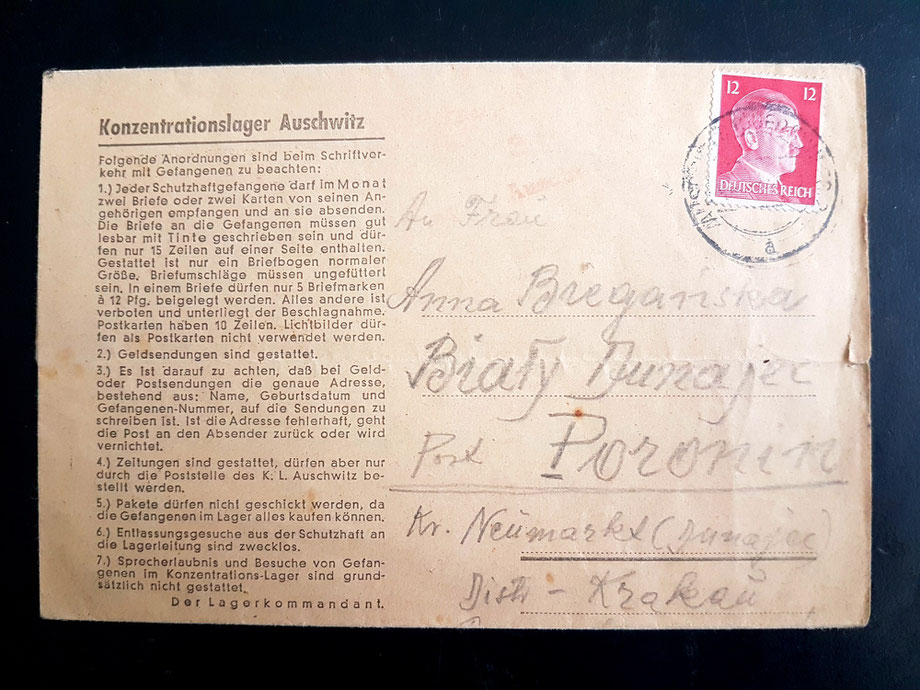 Konzentrationslager Auschwitz
Folgende Anordnungen sind beim Schriftver-
kehr mit Gefangenen zu beachten:
1.) Jeder Schutzhaftgefangene darf im Monat
zwei Briefe oder zwei Karten von seinen An-
gehörigen empfangen und an sie absenden.
Die Briefe an die Gefangenen müssen gut
lesbar mit Tinte geschrieben sein und dür-
fen nur 15 Zeilen auf einer Seite enthalten.
Gestattet ist nur ein Briefbogen normaler
Größe. Briefumschläge müssen ungefüttert
sein. In einem Briefe dürfen nur 5 Briefmarken
à 12 Pfg. beigelegt werden. Alles andere ist
verboten und unterliegt der Beschlagnahme.
Postkarten haben 10 Zeilen. Lichtbilder dür-
fen als Postkarten nicht verwendet werden.
2.) Geldsendungen sind gestattet.
3.) Es ist darauf zu achten, daß bei Geld-
oder Postsendungen die genaue Adresse,
bestehend aus: Name, Geburtsdatum und
Gefangenen-Nummer, auf die Sendungen zu
schreiben ist. Ist die Adresse fehlerhaft, geht
die Post an den Absender zurück oder wird
vernichtet.
4.) Zeitungen sind gestattet, dürfen aber nur
durch die Poststelle des K. L. Auschwitz be-
stellt werden.
5.) Pakete dürfen nicht geschickt werden, da
die Gefangenen im Lager alles kaufen können.
6.) Entlassungsgesuche aus der Schutzhaft an
die Lagerleitung sind zwecklos.
7.) Sprecherlaubnis und Besuche von Gefan-
genen im Konzentrations-Lager sind grund-
sätzlich nicht gestattet.
Der Lagerkommandant.
12 12
DEUTSCHES REICH
a
An Frau
Anna Biegańska
Biały Dunajec
Post Poronin
Kr. Neumarkt (Dunajec)
Distr - Krakau